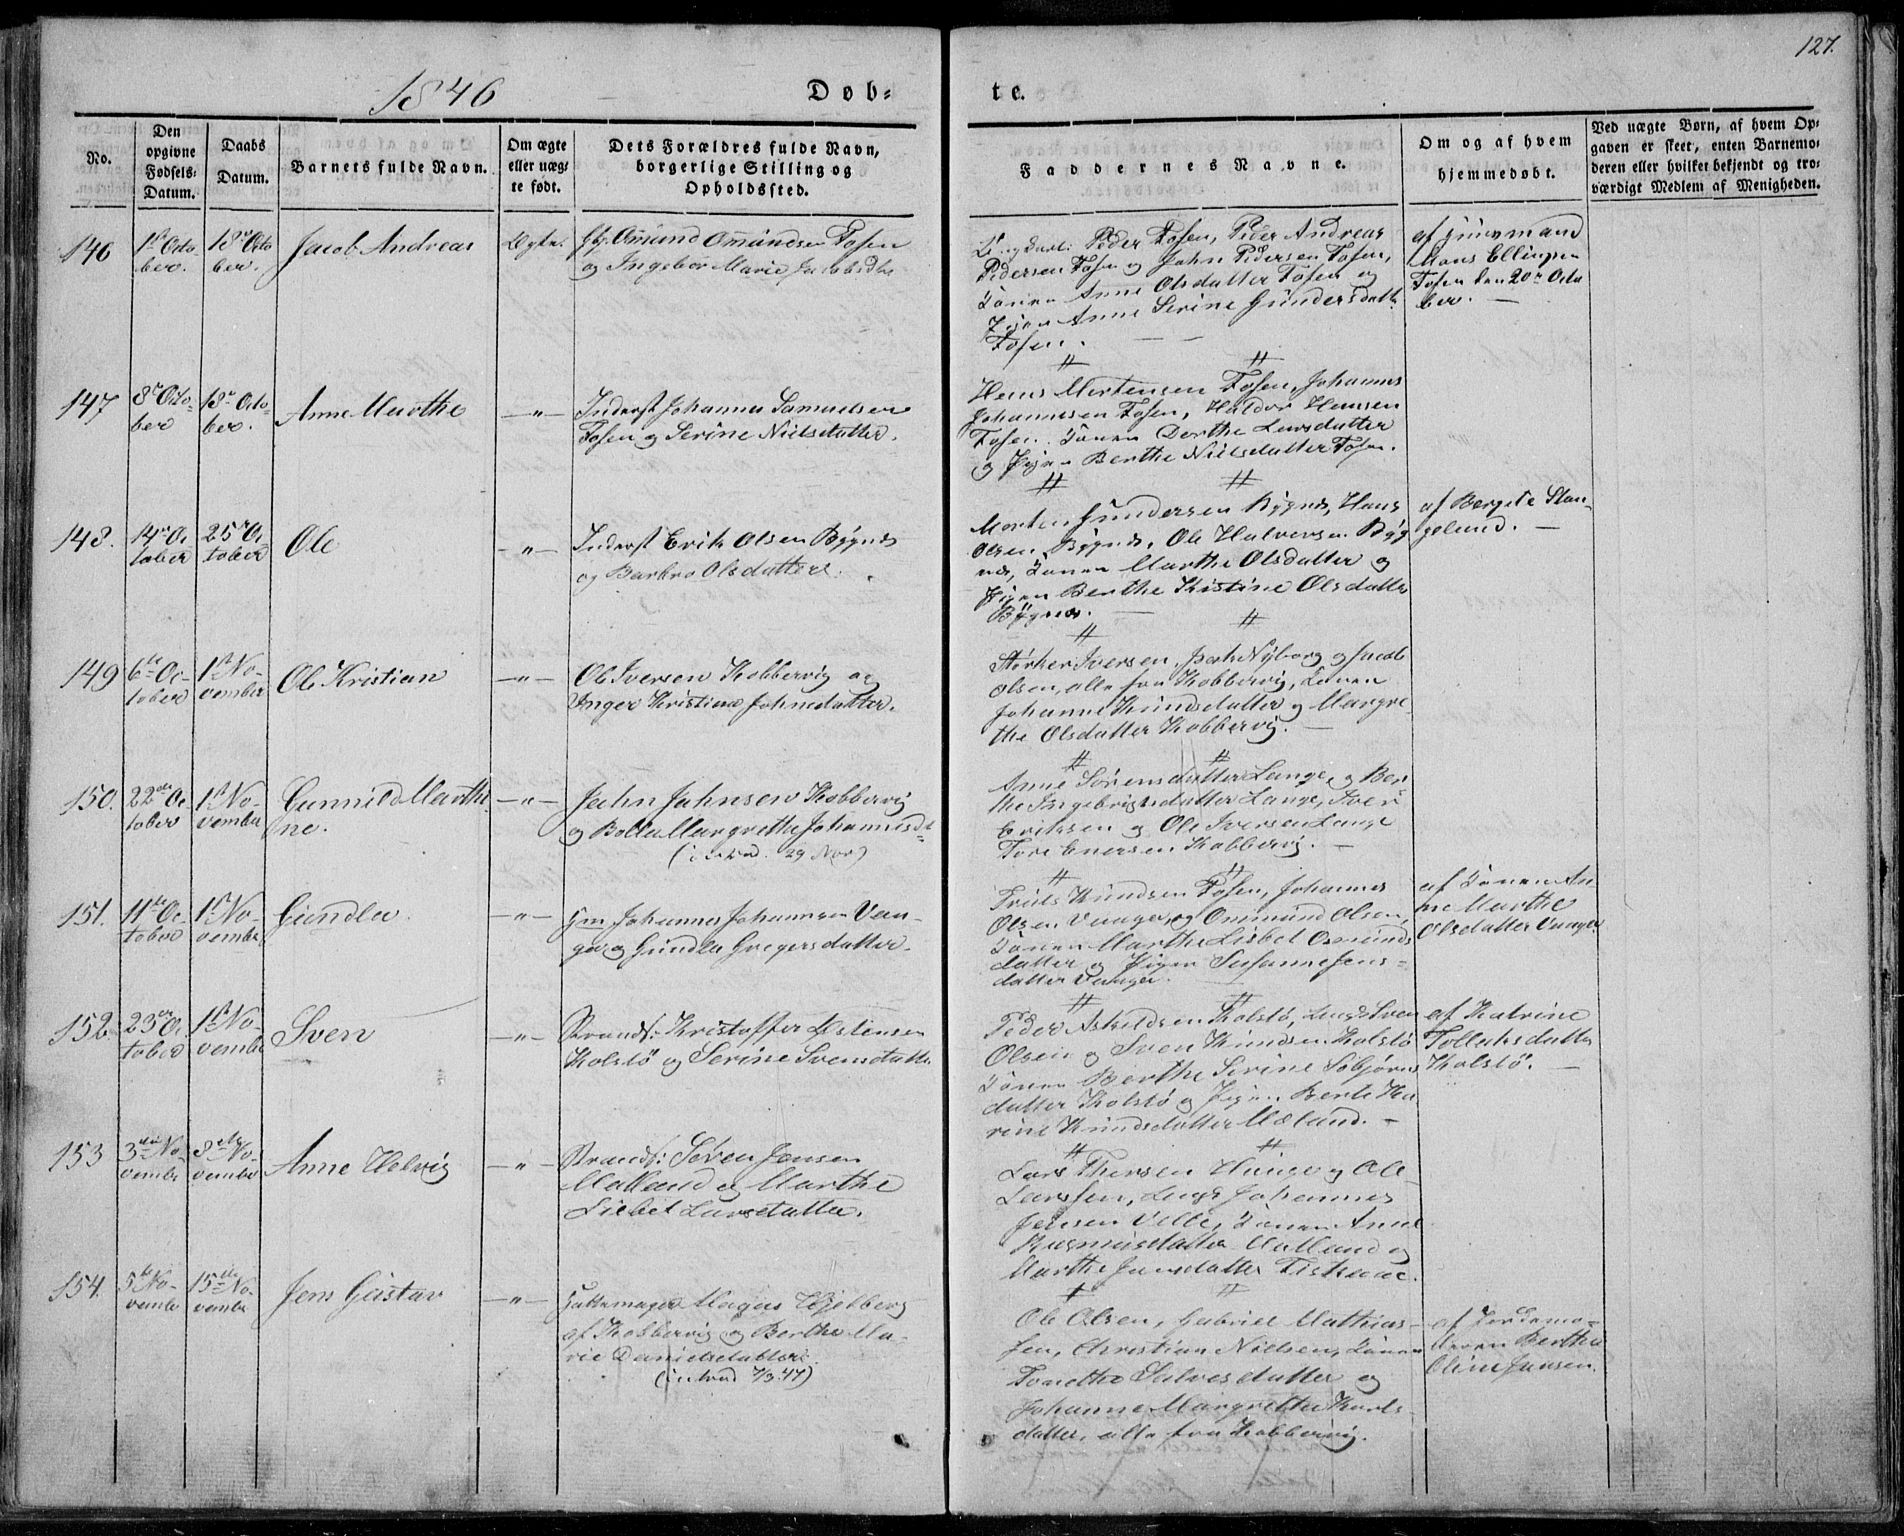 127.
1846
Døb-
te.
No.
Den opgivne Fødsels-Datum.
Daabs Datum.
Barnets fulde Navn.
Om ægte eller uægte født.
Dets Forældres fulde Navn, borgerlige Stilling og Opholdssted.
Faddernes Navne.
Om og af hvem hjemmedøbt.
Ved uægte Børn, af hvem Opgaven er skeet, enten Barnemoderen eller hvilket bekjendt og troværdigt Medlem af Menigheden.
146
1ste Octo-
ber.
18de Octo
ber.
Jacob Andreas
Ægte.
Omund Omundsen Fosen
og Ingebor Marie Jacobsdtr
Peder Fosen, Peder Andreas
Pedersen Fosen og John Pedersen Fosen,
Konen Anne Olsdatter Fosen og
Pigen Anne Serine Gundersdatter
Fosen.
af Gaardmand
Hans Ellingsen
Fosen den 20de Octo
ber.
147
8de Octo-
ber
18de Octo-
ber.
Anne Marthe
-"-
Inderst Johannes Samuelsen
Fosen og Serine Nielsdatter.
Hans Mortensen Fosen, Johannes
Johannesen Fosen, Haldor Hansen
Fosen. Konen Dorthe Larsdatter
og Pigen Berthe Nielsdatter Fosen.
148.
14de Oc
tober
25de Oc
tober
Ole
-"-
Inderst Erik Olsen Bÿgnes
og Barbro Olsdatter.
Morten Gundersen Bÿgnes, Hans
Olsen Bÿgnes, Ole Halversen Bÿg
nes, Konen Marthe Olsdatter og
Pigen Berthe Kristine Olsdatter
Bÿgnes.
af Bergete Stan-
geland.
149
6te Oc-
tober
1ste No-
vember
Ole Kristian
-"-
Ole Iversen Kobbervig og
Inger Kristine Johnsdatter.
Størker Iversen, Nÿborg og Jacob
Olsen, alle fra Kobbervig, Konen
Johanne Knudsdatter og Margre-
the Olsdatter Kobbervig.
150.
22de Oc
tober
1ste No-
vember
Gunnild Marthi
ne.
-"-
John Johnsen Kobbervig
og Bolla Margretha Johannisd
29 Nov)
Anne Sørensdatter Lange, og Ber-
the Ingebrigtsdatter Lange, Iver
Eriksen og Ole Iversen Lange
Tore Enersen Kobbervig.
151.
11te Oc-
tober
1ste No-
vember
Gundla
-"-
Gm Johannes Johannesen Van-
ge og Gundla Gregersdatter.
Truls Knudsen Fosen, Johannes
Olsen Vaage, og Ommund Olsen,
Konen Marthe Lisbet Osmunds
datter og Pigen Susanne Jens-
datter Vaage.
af Konen An-
ne Marthe
Olsdatter Vaage
152.
23de Oc
tober
1ste No-
vember
Sven
-"-
Strands: Kristoffer Østensen
Kolstø og Serine Svensdatter
Peder Askildsen Kolstø, Sven
Olsen og Sven Knudsen Kolstø
Konen Berthe Serine Sebjørns
datter Kolstø og Pigen Berte Ka
rine Knudsdatter Mæland.
af Katrine
Tolleksdatter
Kolstø.
153
3die No-
vember
8de No-
vember
Anne Helvig
-"-
Strands: Søren Jensen
Malland og Marthe
Lisbet Larsdatter.
Lars Thorsen Hauge og Ole
Larssen, Johannes
Jensen Velle, Konen Anne
Rasmusdatter Malland og
Marthe Jansdatter
154.
5te No-
vember
15de No-
vember
Jens Gustav
-"-
Hattemager Magus Hjelberg
af Kobbervig og Berthe Ma-
rie Danielsdatter.
7/3 47)
Ole Olsen, Gabriel Mathias-
sen, Christian Nielsen, Konen
Tonette Salvesdatter og
Johanne Margretha Karls-
datter, alle fra Kobbervig.
af Jordemo-
deren Berthe
Oline Jansen.